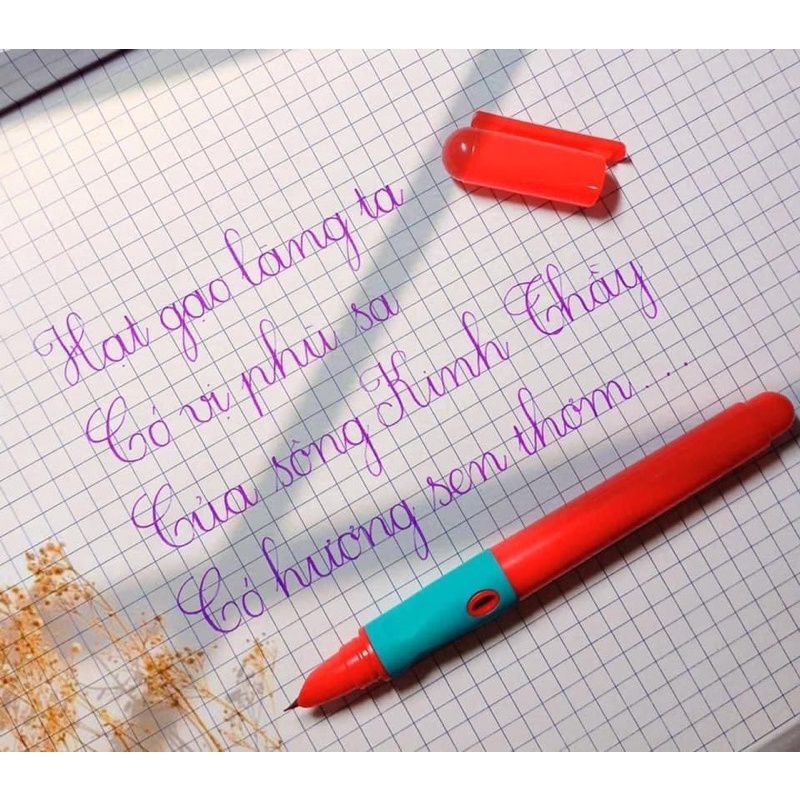 Hạt gạo làng ta
Có vị phù sa
Của sông Kinh Thầy
Có hương sen thơm...